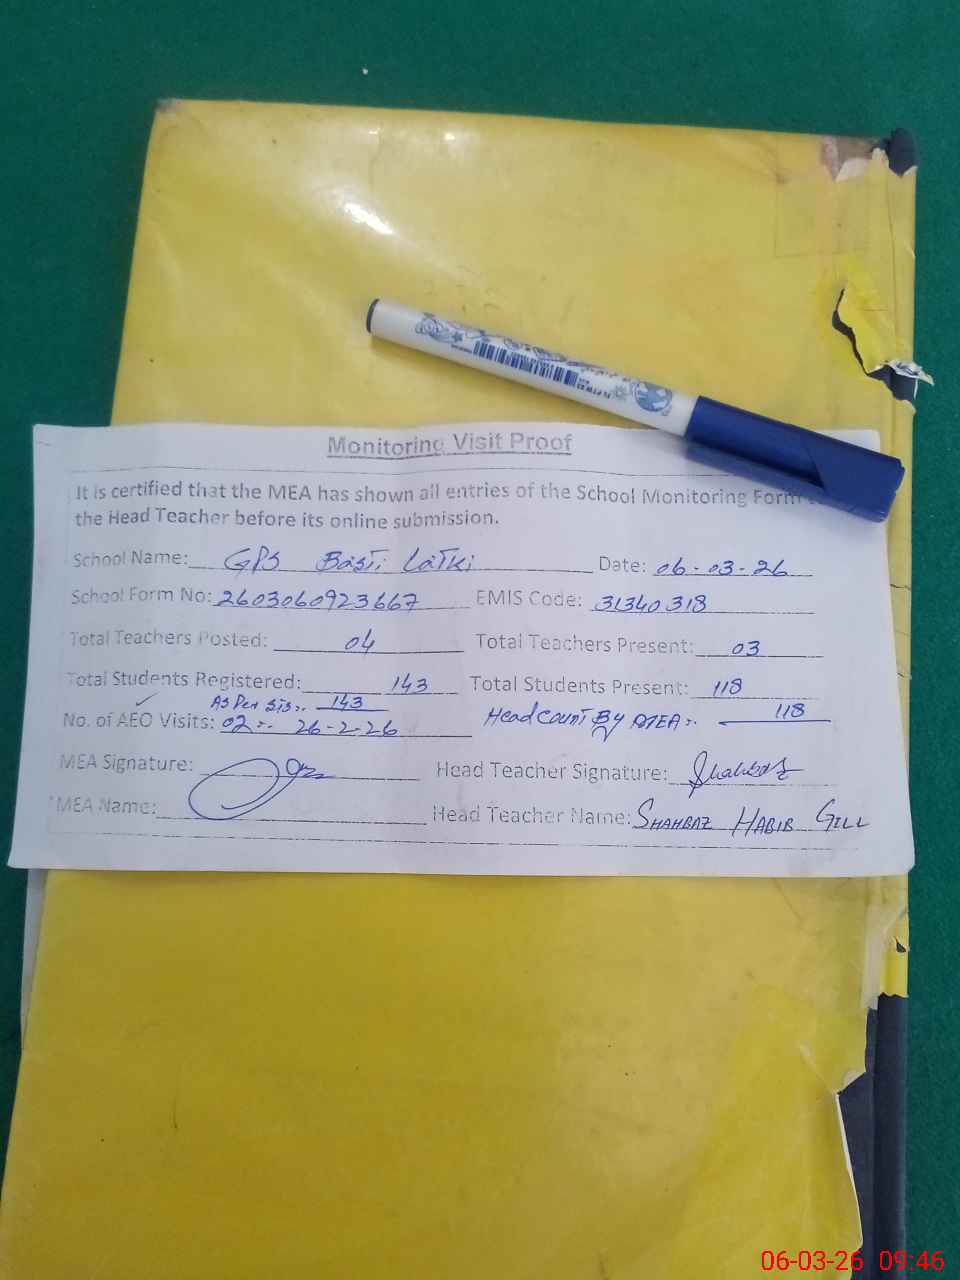 Monitoring Visit Proof
It is certified that the MEA has shown all entries of the School Monitoring Form
the Head Teacher before its online submission.
School Name: GPS Basti Latki Date: 06-03-26
School Form No: 2603060923667 EMIS Code: 31340318
Total Teachers Posted: 04 Total Teachers Present: 03
Total Students Registered: 143 Total Students Present: 118
As Per SIS:. 143
No. of AEO Visits: 02 :- 26-2-26 Head count By MEA:. 118
MEA Signature: Head Teacher Signature: Shahbaz
MEA Name: Head Teacher Name: SHAHBAZ HABIB GILL
06-03-26 09:46